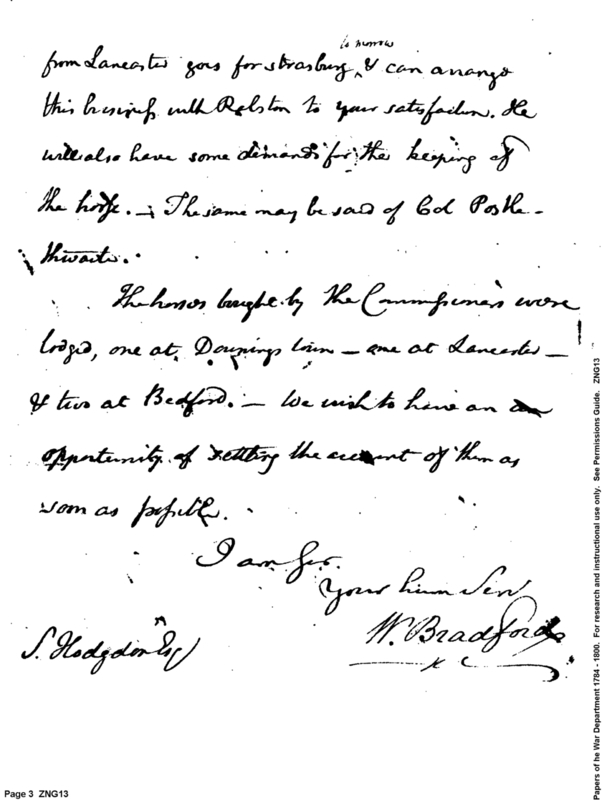 to morrow
from Lancaster goes for Strasburg, & can arrange
this business with Ralston to your satisfaction. He
will also have some demands for the keeping of
the horse. — The same may be said of Col Postle-
thwaite.
The horses bought by the Commissioners were
lodged, one at Downings town — one at Lancaster —
& two at Bedford. — We wish to have an
opportunity of settling the account of them as
soon as possible.
I am Sir
Your hum Serv
W. Bradford
S. Hodgdon Esq
Page 3 ZNG13
Papers of he War Department 1784 - 1800. For research and instructional use only. See Permissions Guide. ZNG13